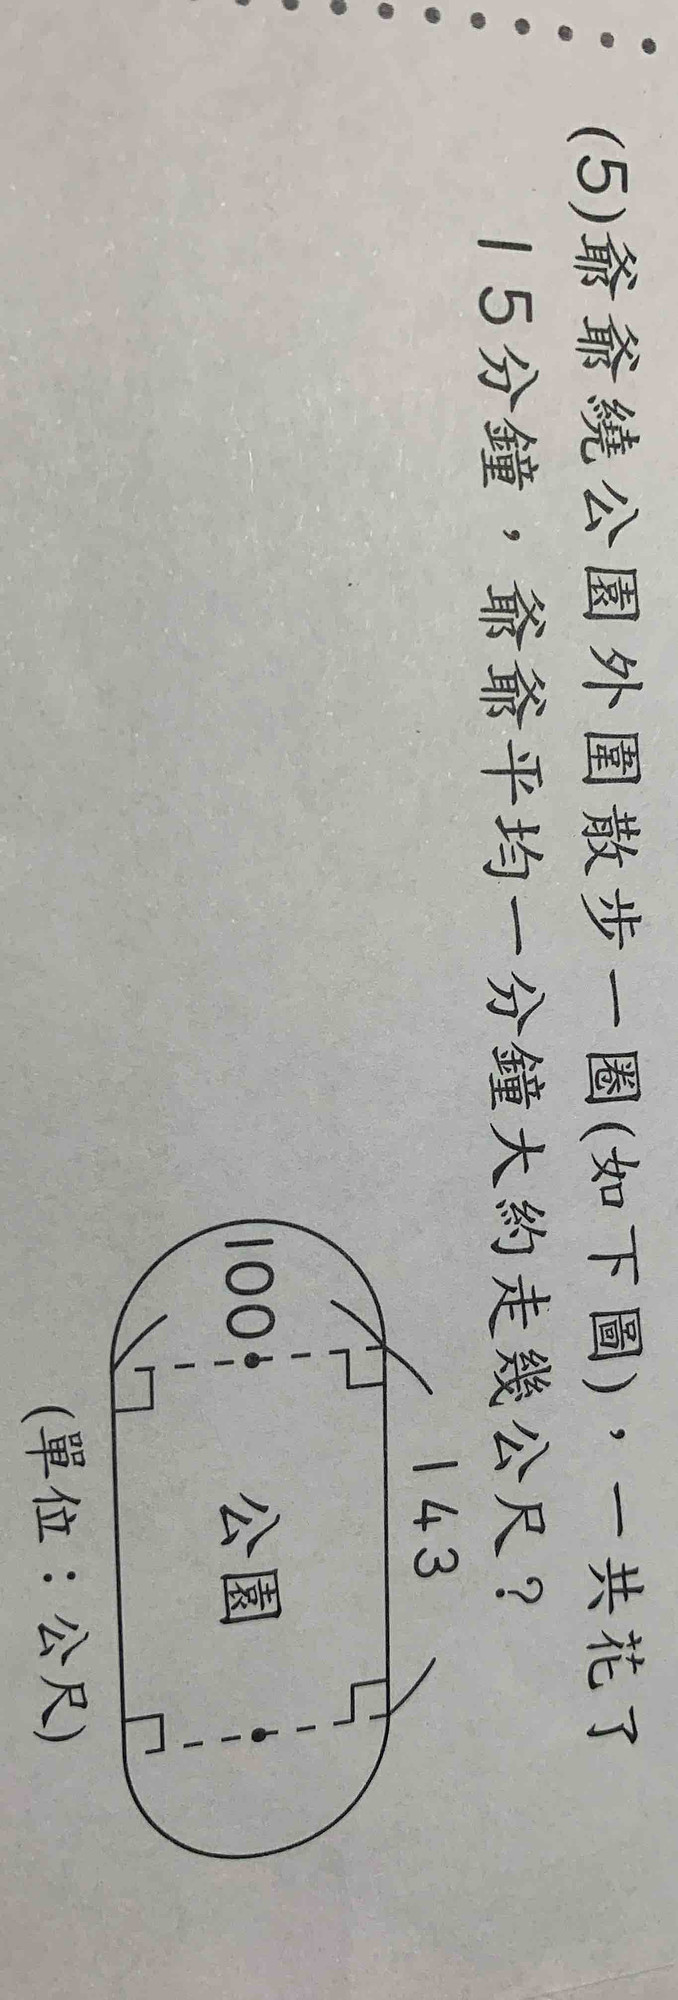 (5)爺爺繞公園外圍散步一圈(如下圖)，一共花了
15分鐘，爺爺平均一分鐘大約走幾公尺？
143
100
公園
(單位：公尺)